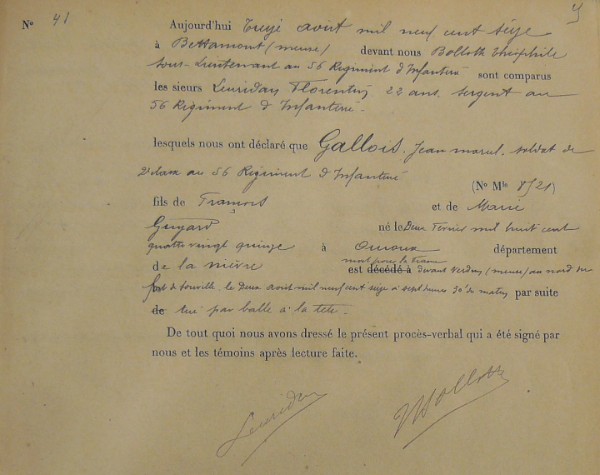 N° 41
Aujourd'hui Treize août mil neuf cent seize
à (meuse) devant nous Bollotte Théophile
Sous-Lieutenant au 56 Régiment d'Infanterie sont comparus
les sieurs Leuridan Florentin 22 ans, sergent au
56 Régiment d'Infanterie.
lesquels nous ont déclaré que Gallois, Jean marcel, soldat de
2e classe au 56 Régiment d'Infanterie
(No Mle 8521)
fils de François et de Marie
Guyard né le Deux Février mil huit cent
quatre vingt quinze à Ouroux département
mort pour la France
de la nièvre est décédé à devant Verdun (meuse) au nord du
fort de Souville, le deux août mil neuf cent seize à sept heures 30' du matin par suite
de tué par balle à la tête.
De tout quoi nous avons dressé le présent procès-verbal qui a été signé par
nous et les témoins après lecture faite.
Leuridan Bollotte